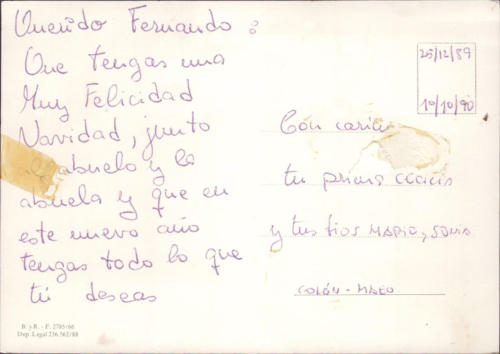 Querido Fernando :
Que tengas una
Muy Felicidad
Navidad, junto
al abuelo y la
abuela y que en
este nuevo año
tengas todo lo que
tú deseas
B. y R. - F. 2785/66
Dep. Legal 236.562/88
25/12/89
10/10/90
Con
tu prima
y tus tios MARIO, SONIA
COLÓN -